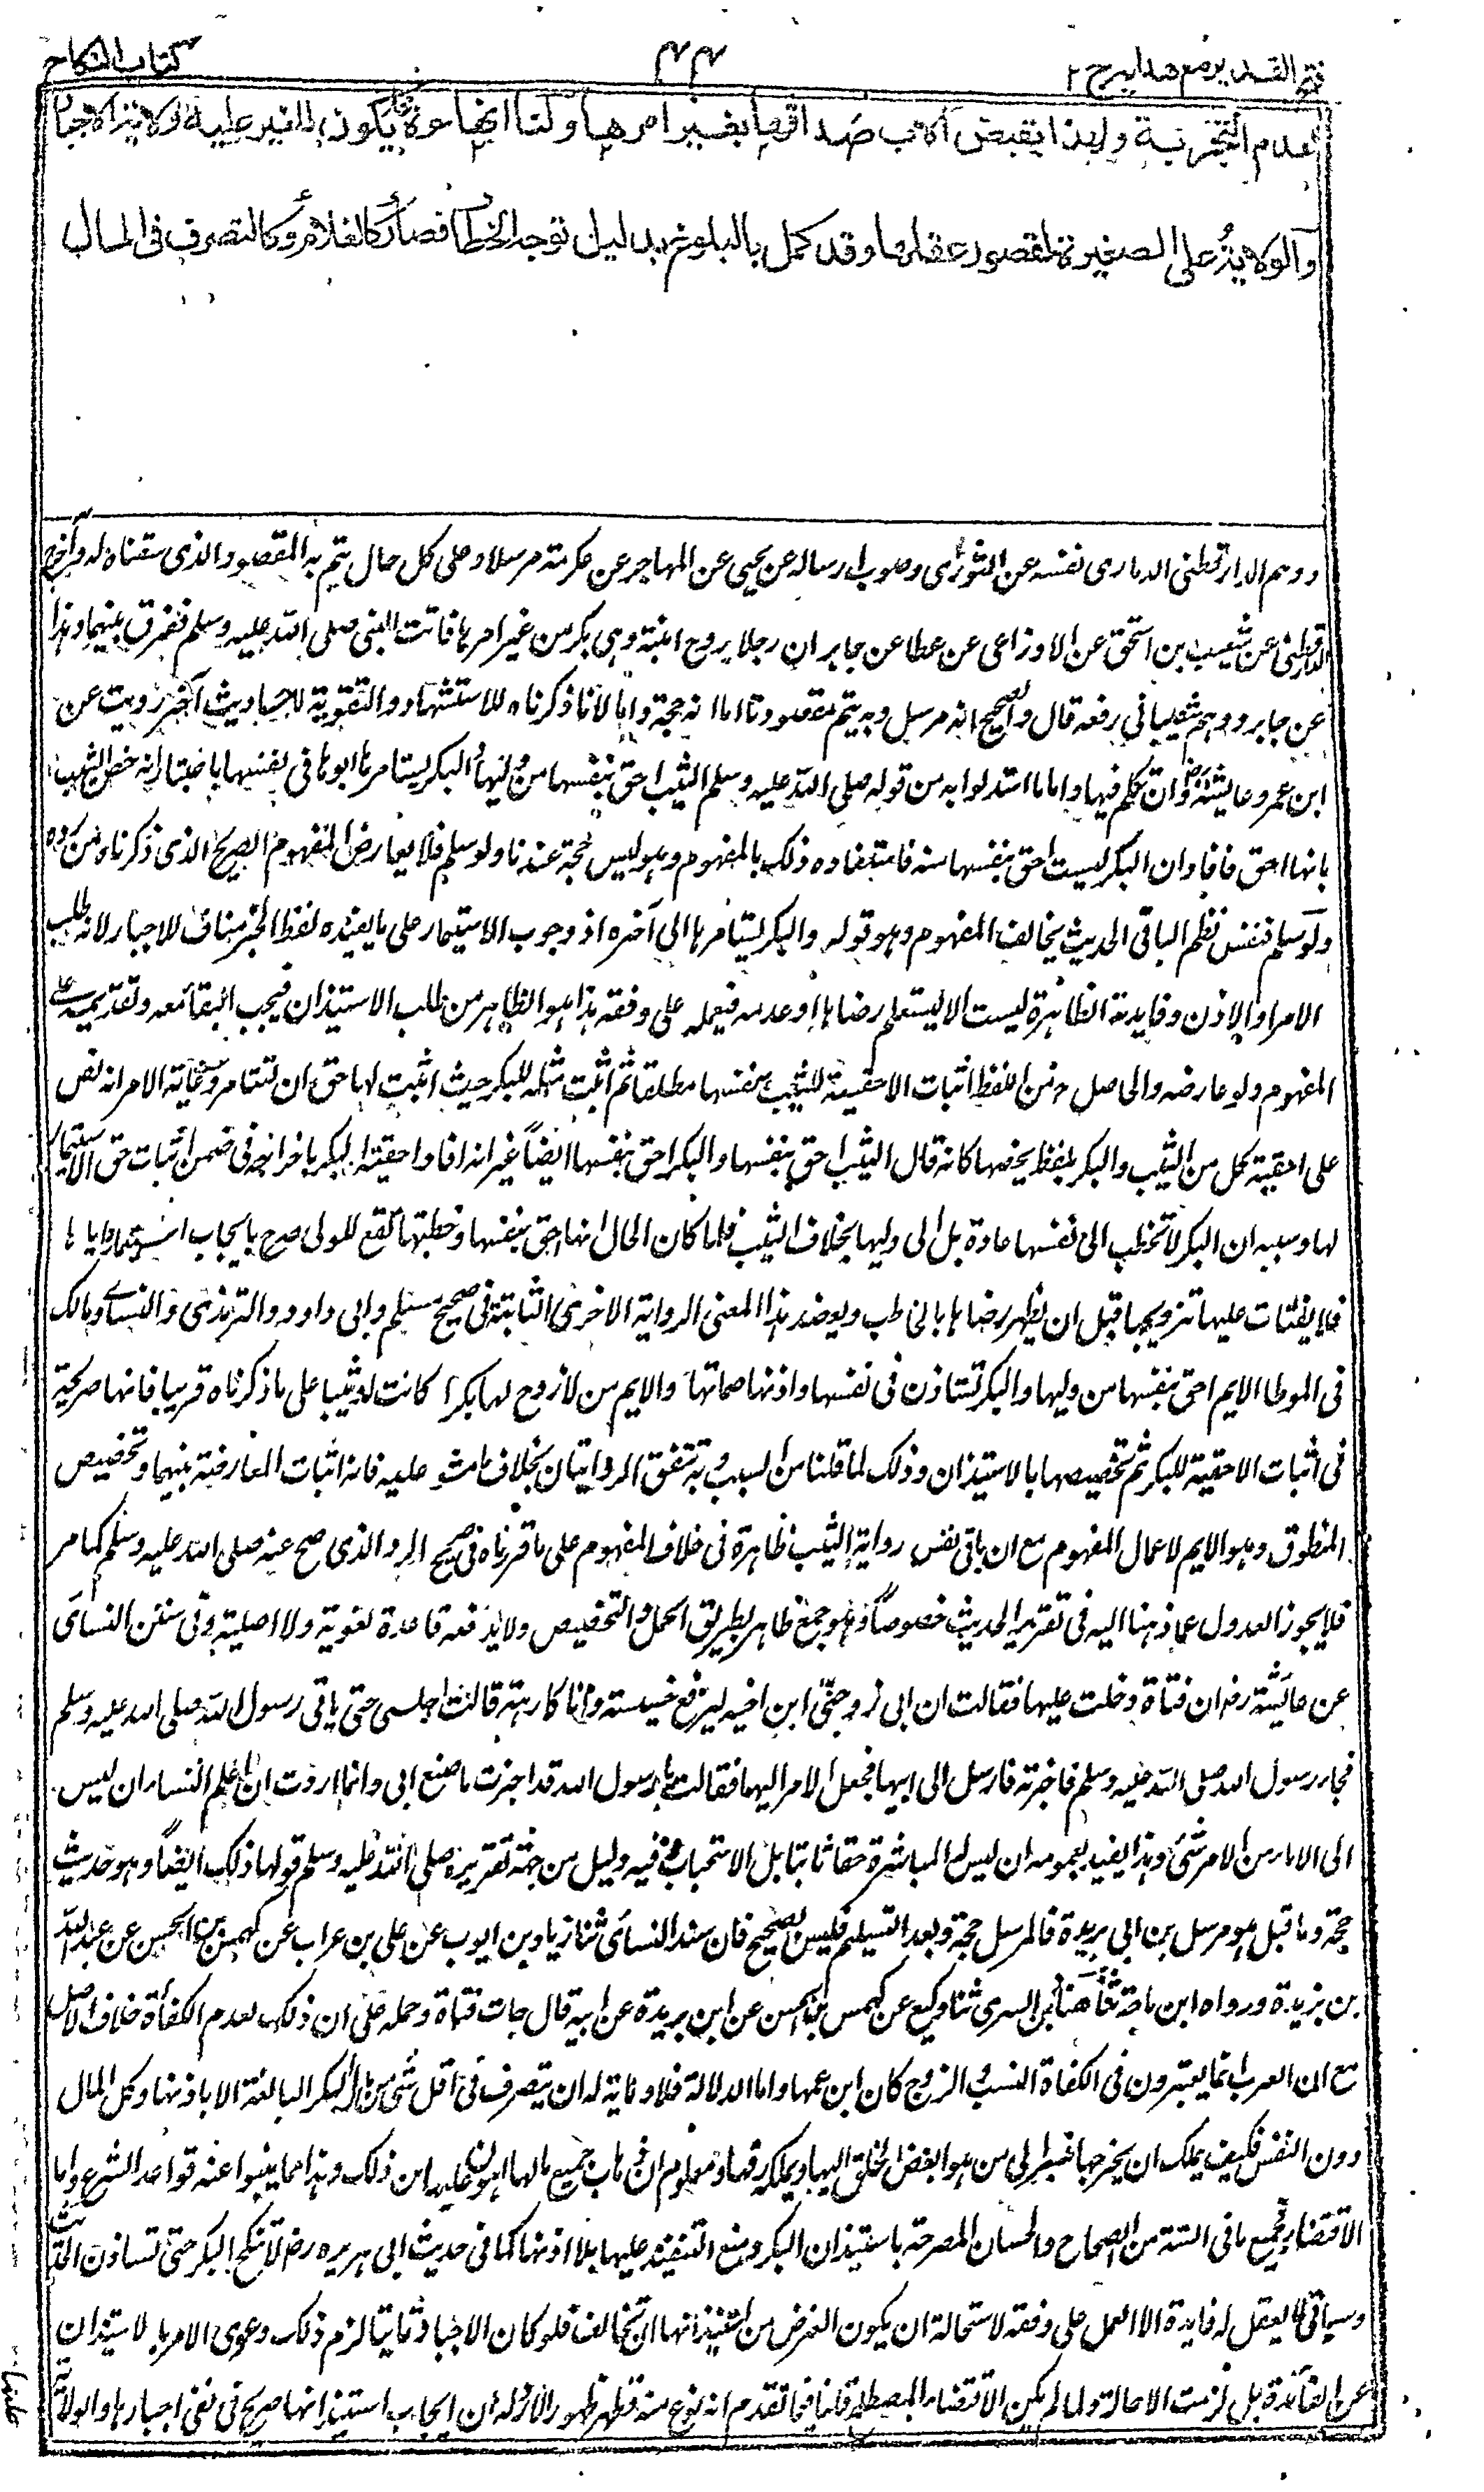 فتح القدير مع هدايه ج ٢
٤٤
كتاب النكاح
لعدم التجربة ولهذا يقبض الاب صداقها بغير امرها ولنا انها حرة فلا يكون للغير عليها ولاية الاجبار
والولاية على الصغيرة لقصور عقلها وقد كمل بالبلوغ بدليل توجه الخطاب فصار كالغلام وكالتصرف فى المال
ووهم الدارقطنى الذمارى نفسه عن الثورى وصوب ارساله عن يحيى عن المهاجر عن عكرمة مرسلا وعلى كل حال يتم به المقصود والذى سقناه له واخرج
الدارقطنى عن شعيب بن اسحق عن الاوزاعى عن عطا عن جابر ان رجلا زوج ابنته وهى بكر من غير امرها فاتت النبى صلى الله عليه وسلم ففرق بينهما وهذا
عن جابر ووهم شعيبا فى رفعه قال والصحيح انه مرسل وبه يتم مقصودنا اما انه حجة واما لانا ذكرناه للاستشهاد والتقوية لاحاديث آخر رويت عن
ابن عمر وعايشة رض وان تكلم فيها واما ما استدلوا به من قوله صلى الله عليه وسلم الثيب احق بنفسها من وليها والبكر يستامرها ابوها فى نفسها باعتبار انه خص الثيب
بانها احق فافاد ان البكر ليست احق بنفسها منه فاستفاده ذلك بالمفهوم وهو ليس حجة عندنا ولو سلم فلا يعارض المفهوم الصريح الذى ذكرناه من رده
ولو سلم فنفس نظم الباقى الحديث يخالف المفهوم وهو قوله والبكر يستامرها الى آخره اذ وجوب الاستيمار على ما يفيده لفظ الخبر مناف للاجبار لانه طلب
الامر او الاذن وفايدته الظاهرة ليست الا ليستعلم رضاها او عدمه فيعمل على وفقه هذا هو الظاهر من طلب الاستيذان فيجب البقا معه وتقديمه على
المفهوم ولو عارضه والحاصل من اللفظ اثبات الاحقية للثيب بنفسها مطلقا ثم اثبت مثله للبكر حيث اثبت لها حق ان تستامر وغاية الامر انه نص
على احقية كل من الثيب والبكر بلفظ يخصها كانه قال الثيب احق بنفسها والبكر احق بنفسها ايضاً غير انه افاد احقية البكر باخراجه فى ضمن اثبات حق الاستيمار
لها وسببه ان البكر لا تخطب الى نفسها عادة بل الى وليها بخلاف الثيب فلما كان الحال انها احق بنفسها وخطبتها تقع للولى صرح بايجاب استيماره اياها
فلا يفتات عليها تزويجها قبل ان يظهر رضاها بالخاطب ويعضد هذا المعنى الرواية الاخرى الثابتة فى صحيح مسلم وابى داود والترمذى والنساى ومالك
فى الموطا الايم احق بنفسها من وليها والبكر تستاذن فى نفسها واذنها صماتها والايم من لا زوج لها بكرا كانت او ثيبا على ما ذكرناه قريبا فانها صريحة
فى اثبات الاحقية للبكر ثم تخصيصها بالاستيذان وذلك لما قلنا من السبب وبه تتفق الروايتان بخلاف ما مشى عليه فانه اثبات المعارضة بينهما وتخصيص
المنطوق وهو الايم لاعمال المفهوم مع ان باقى نفس رواية الثيب ظاهرة فى خلاف المفهوم على ما قررناه فى صحيح الرد الذى صح عنه صلى الله عليه وسلم كما مر
فلا يجوز العدول عما ذهبنا اليه فى تقرير الحديث خصوصاً وهو جمع ظاهر بطريق الحمل والتخصيص ولا يدفعه قاعدة لغوية ولا اصلية وفى سنن النسائى
عن عائشة رض ان فتاة دخلت عليها فقالت ان ابى زوجنى ابن اخيه ليرفع خسيسته وانا كارهة قالت اجلسى حتى ياتى رسول الله صلى الله عليه وسلم
فجاء رسول الله صلى الله عليه وسلم فاخبرته فارسل الى ابيها فجعل الامر اليها فقالت يا رسول الله قد اجزت ما صنع ابى وانما اردت ان اعلم النساء ان ليس
الى الاباء من الامر شئ وهذا يفيد بعمومه ان ليس له المباشرة حقا ثابتا بل الاستحباب وفيه دليل من جهة تقريره صلى الله عليه وسلم قولها ذلك ايضاً وهو حديث
حجة وما قيل هو مرسل بن ابى بريدة فالمرسل حجة وبعد التسليم فليس بصحيح فان سند النسائى ثنا زياد بن ايوب عن على بن عراب عن كهمس بن الحسن عن عبد الله
بن بريدة ورواه ابن ماجة ثنا هناد بن السرى ثنا وكيع عن كهمس بن الحسن عن ابن بريدة عن ابيه قال جات فتاة وحمله على ان ذلك لعدم الكفاة خلاف الاصل
مع ان العرب انما يعتبرون فى الكفاة النسب والزوج كان ابن عمها واما الدلالة فلا ولاية له ان يتصرف فى اقل شئ من مال البكر البالغة الا باذنها وكل المال
دون النفس فكيف يملك ان يخرجها قسرا الى من هو ابغض الخلق اليها ويملكه رقها ومعلوم ان ذهاب جميع مالها اهون عليها من ذلك وهذا مما ينبوا عنه قواعد الشرع واما
الاقتضاء فجميع ما فى السنة من الصحاح والحسان المصرحة باستيذان البكر ومنع التنفيذ عليها بلا اذنها كما فى حديث ابى هريره رض لا تنكح البكر حتى تستاذن الحديث
وسياتى لا يعقل له فايدة الا العمل على وفقه لاستحالة ان يكون الغرض من استيذانها ان تخالف فلو كان الاجبار ثابتا لزم ذلك وعرى الامر بالاستيذان
عن الفائدة بل لزمت الاحالة ولما لم يكن الاقتضاء المصطلح قلنا فيما تقدم انه نوع منه فظهر ظهور الامر له ان ايجاب استيذانها صريح فى نفى اجبارها والولاية